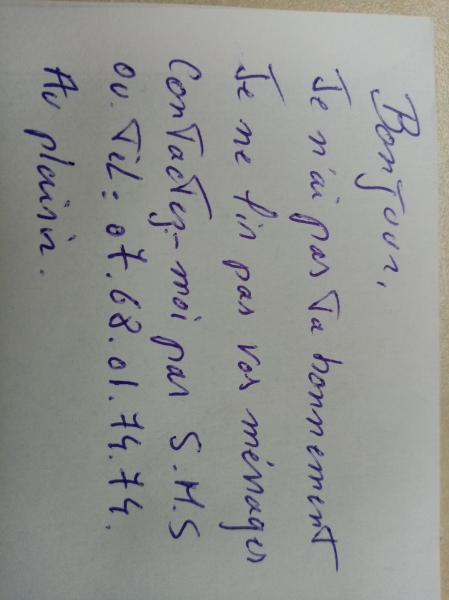 Bonjour,
Je n'ai pas Ta bonnement
Je ne lis pas vos ménages
Contactez-moi pas S.M.S
ou. Tel: 07.68.01.74.74.
Au plaisir.